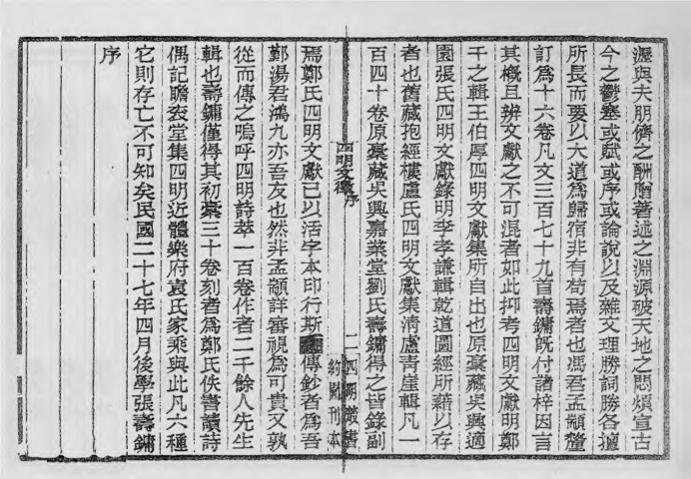 瀝與夫朋儕之酬贈著述之淵源破天地之悶煩宣古
今之鬱塞或賦或序或論說以及雜文理勝詞勝各擅
所長而要以大道為歸宿非有苟焉者也馮君孟顓釐
訂為十六卷凡文三百七十九首壽鏞旣付諸梓因言
其槪且辨文獻之不可混者如此抑考四明文獻明鄭
千之輯王伯厚四明文獻集所自出也原稾藏吳興適
園張氏四明文獻錄明李孝謙輯乾道圖經所藉以存
者也舊藏抱經樓盧氏四明文獻集淸盧靑厓輯凡一
百四十卷原稾藏吳興嘉業堂劉氏壽鏞得之皆錄副
四明文徵 序
二 四明叢書
約園刊本
焉鄭氏四明文獻已以活字本印行斯傳鈔者為吾
鄞湯君鴻九亦吾友也然非孟顓詳審視為可貴又孰
從而傳之嗚呼四明詩萃一百卷作者二千餘人先生
輯也壽鏞僅得其初稾三十卷刻者為鄭氏佚書讀詩
偶記瞻袞堂集四明近體樂府袁氏家乘與此凡六種
它則存亡不可知矣民國二十七年四月後學張壽鏞
序